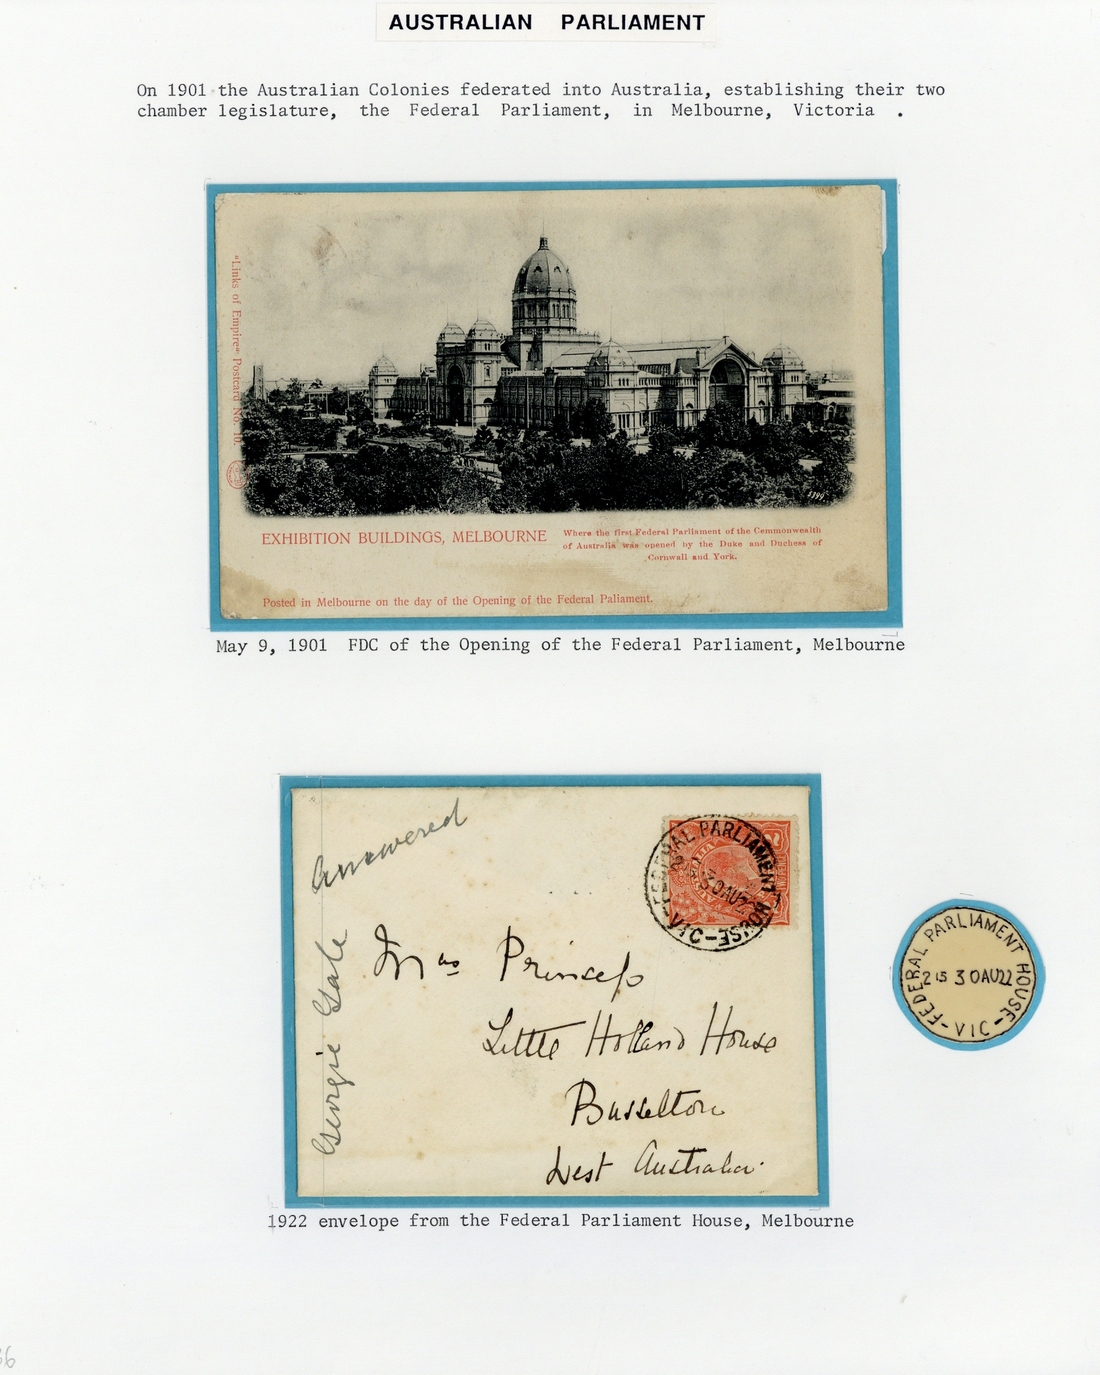 AUSTRALIAN PARLIAMENT
On 1901 the Australian Colonies federated into Australia, establishing their two
chamber legislature, the Federal Parliament, in Melbourne, Victoria .
"Links of Empire" Postcard No. 10.
EXHIBITION BUILDINGS, MELBOURNE
Where the first Federal Parliament of the Commonwealth
of Australia was opened by the Duke and Duchess of
Cornwall and York.
Posted in Melbourne on the day of the Opening of the Federal Paliament.
May 9, 1901 FDC of the Opening of the Federal Parliament, Melbourne
Answered
Georgie Gale
FEDERAL PARLIAMENT HOUSE-VIC-
30AU22
Mrs Princep
Little Holland House
Busselton
West Australia.
FEDERAL PARLIAMENT HOUSE
2 15 30AU22
-VIC-
1922 envelope from the Federal Parliament House, Melbourne